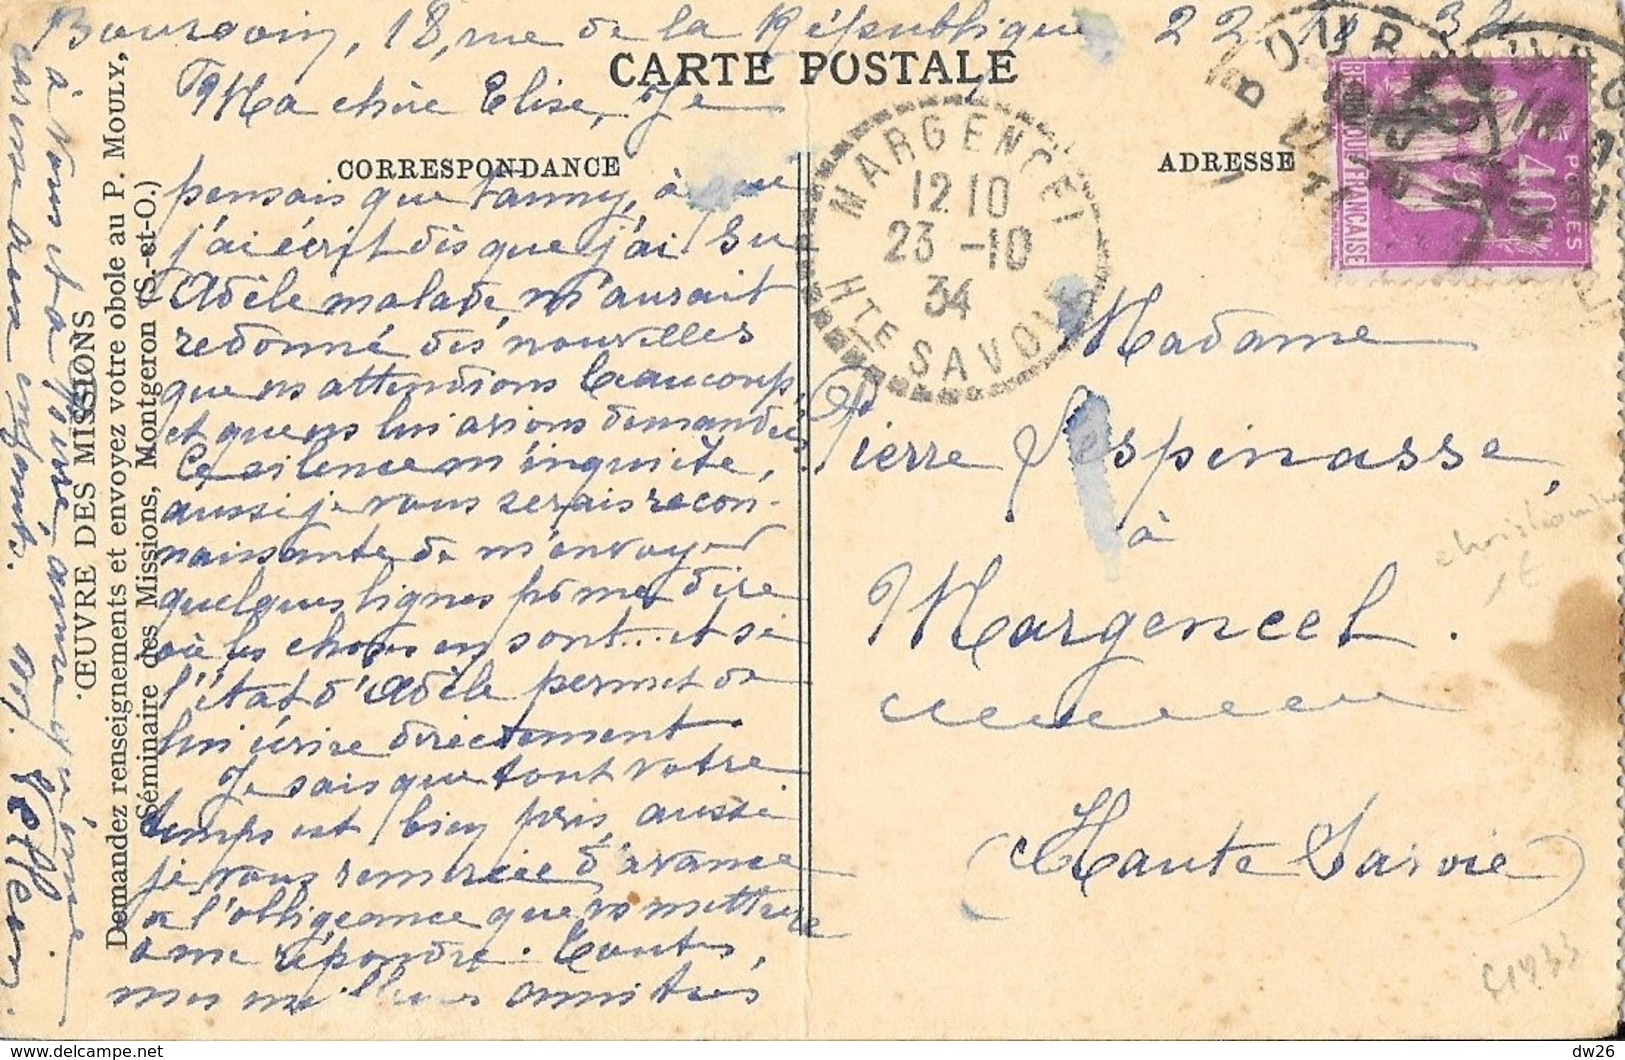 Bourgoin, 18, rue de la République 22 10 34
CARTE POSTALE
Ma chère Elise, Je
CORRESPONDANCE
pensais que Fanny, à que
j'ai écrit dis que j'ai su
Adèle malade, m'aurait
redonné des nouvelles
que ns attendions beaucoup,
et que ns lui avions demandées
Ce silence m'inquiète,
aussi je vous serais recon-
naissante de m'envoyer
quelques lignes pr me dire
où les choses en sont.. et si
l'état d'Adèle permet de
lui écrire directement.
Je sais que tout votre
temps est bien pris, aussi
je vous remercie d'avance
de l'obligeance que vs mettrez
à me répondre. Toutes,
mes meilleures amitiés
à vous et à
vos enfants.
ŒUVRE DES MISSIONS
Demandez renseignements et envoyez votre obole au P. MOULY,
Séminaire des Missions, Montgeron (S.-et-O.)
MARGENCEL
12 10
23 -10
34
HTE SAVOIE
ADRESSE
BOURGOIN
REPUBLIQUE FRANÇAISE
POSTES
40
Madame
Pierre Lespinasse,
à
Margencel.
(Haute Savoie)
dw26